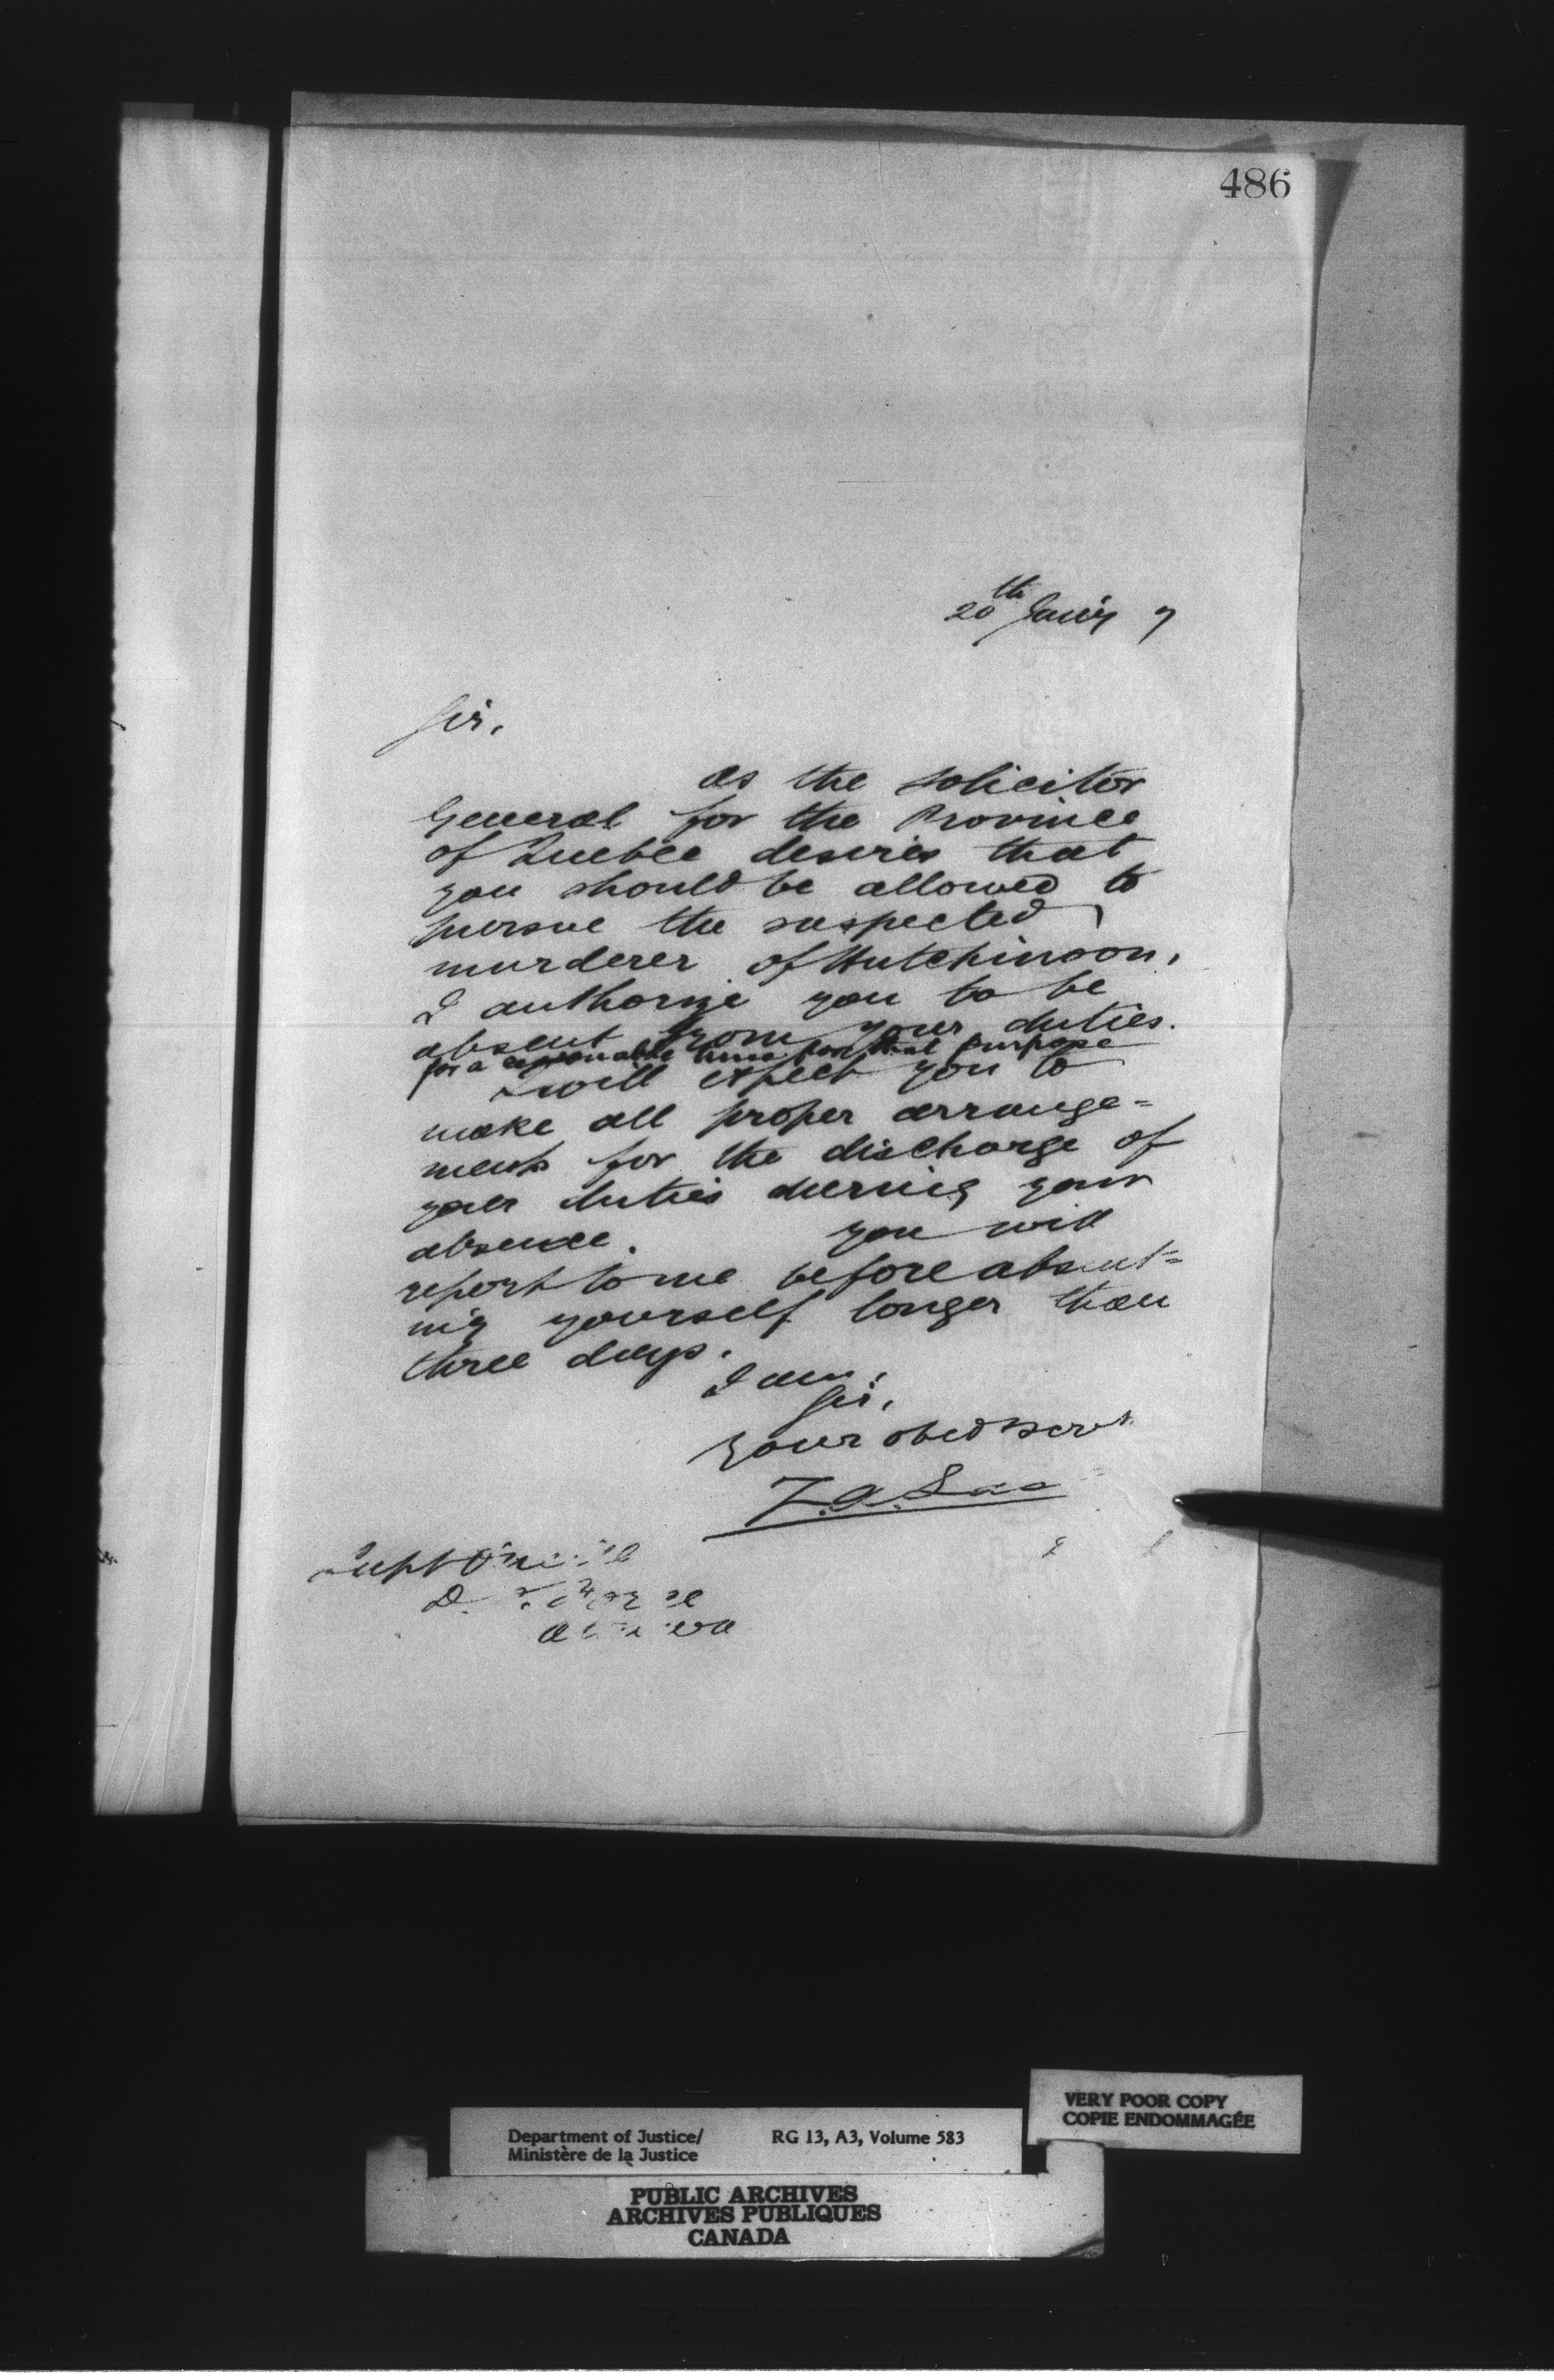 486
20th Jan'y 7
Sir,
As the Solicitor
General for the Province
of Quebec desires that
you should be allowed to
pursue the suspected
murderer of Hutchinson,
I authorize you to be
absent from your duties.
for a reasonable time for that purpose
I will expect you to
make all proper arrange=
ments for the discharge of
your duties during your
absence. You will
report to me before absent=
ing yourself longer than
three days.
I am,
Sir,
Your obed serv't
Supt
D.
VERY POOR COPY
COPIE ENDOMMAGÉE
Department of Justice/ RG 13, A3, Volume 583
Ministère de la Justice
PUBLIC ARCHIVES
ARCHIVES PUBLIQUES
CANADA